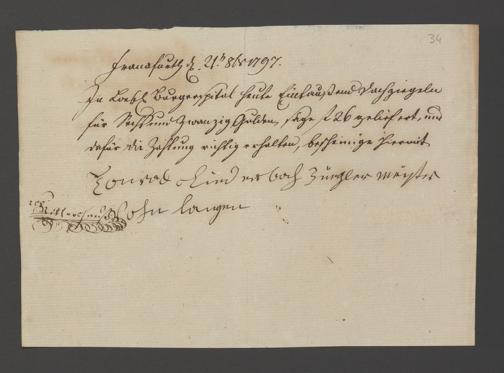 34
Franckfurth d. 21t. 8br 1797.
In Löbl. Burgerspital heute Ein tausend Dachziegeln
für Sechs und zwanzig Gulden, sage f 26 geliefert, und
dafür die Zahlung richtig erhalten, bescheinige hiermit
Konrad Lind er bach Zürgler meister
von langen